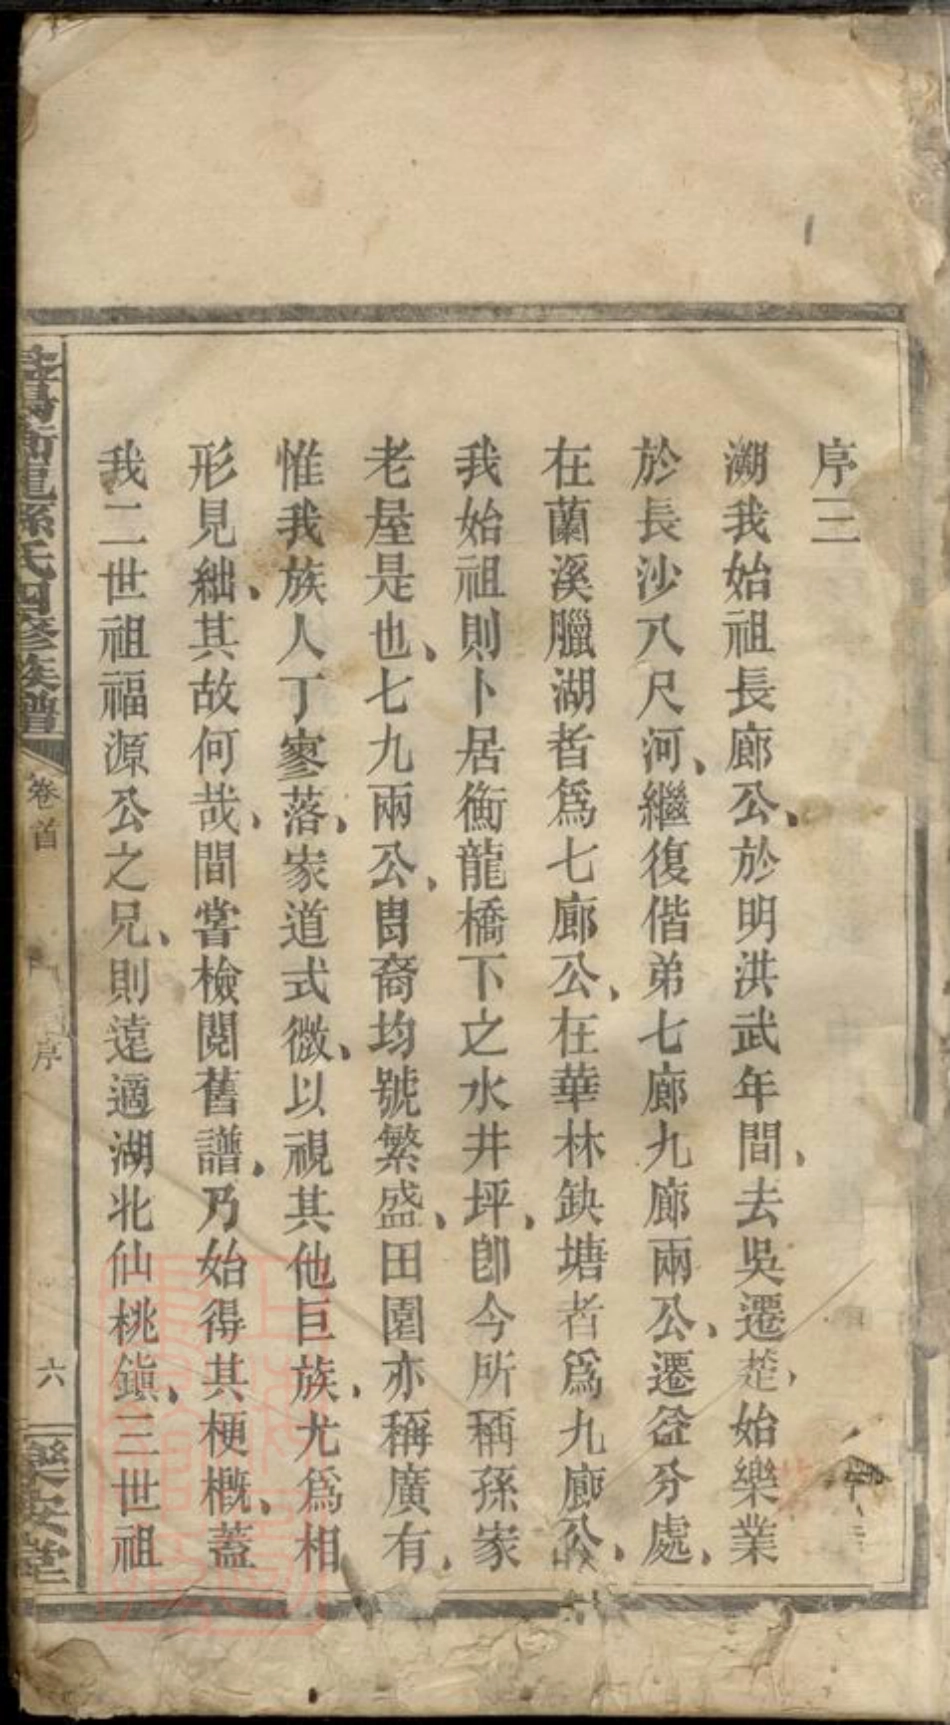 序三
溯我始祖長廊公、於明洪武年間、去吳遷楚、始樂業
於長沙八尺河、繼復偕弟七廊九廊兩公、遷益分處、
在蘭溪臘湖者爲七廊公、在華林鈌塘者爲九廊公、
我始祖則卜居衡龍橋下之水井坪、卽今所稱孫家
老屋是也、七九兩公、胄裔均號繁盛、田園亦稱廣有、
惟我族人丁寥落、家道式微、以視其他巨族、尤爲相
形見絀、其故何哉、間嘗檢閱舊譜、乃始得其梗概、蓋
我二世祖福源公之兄、則遠適湖北仙桃鎭、三世祖
衡龍孫氏四修族譜
卷首
序
六
樂安堂